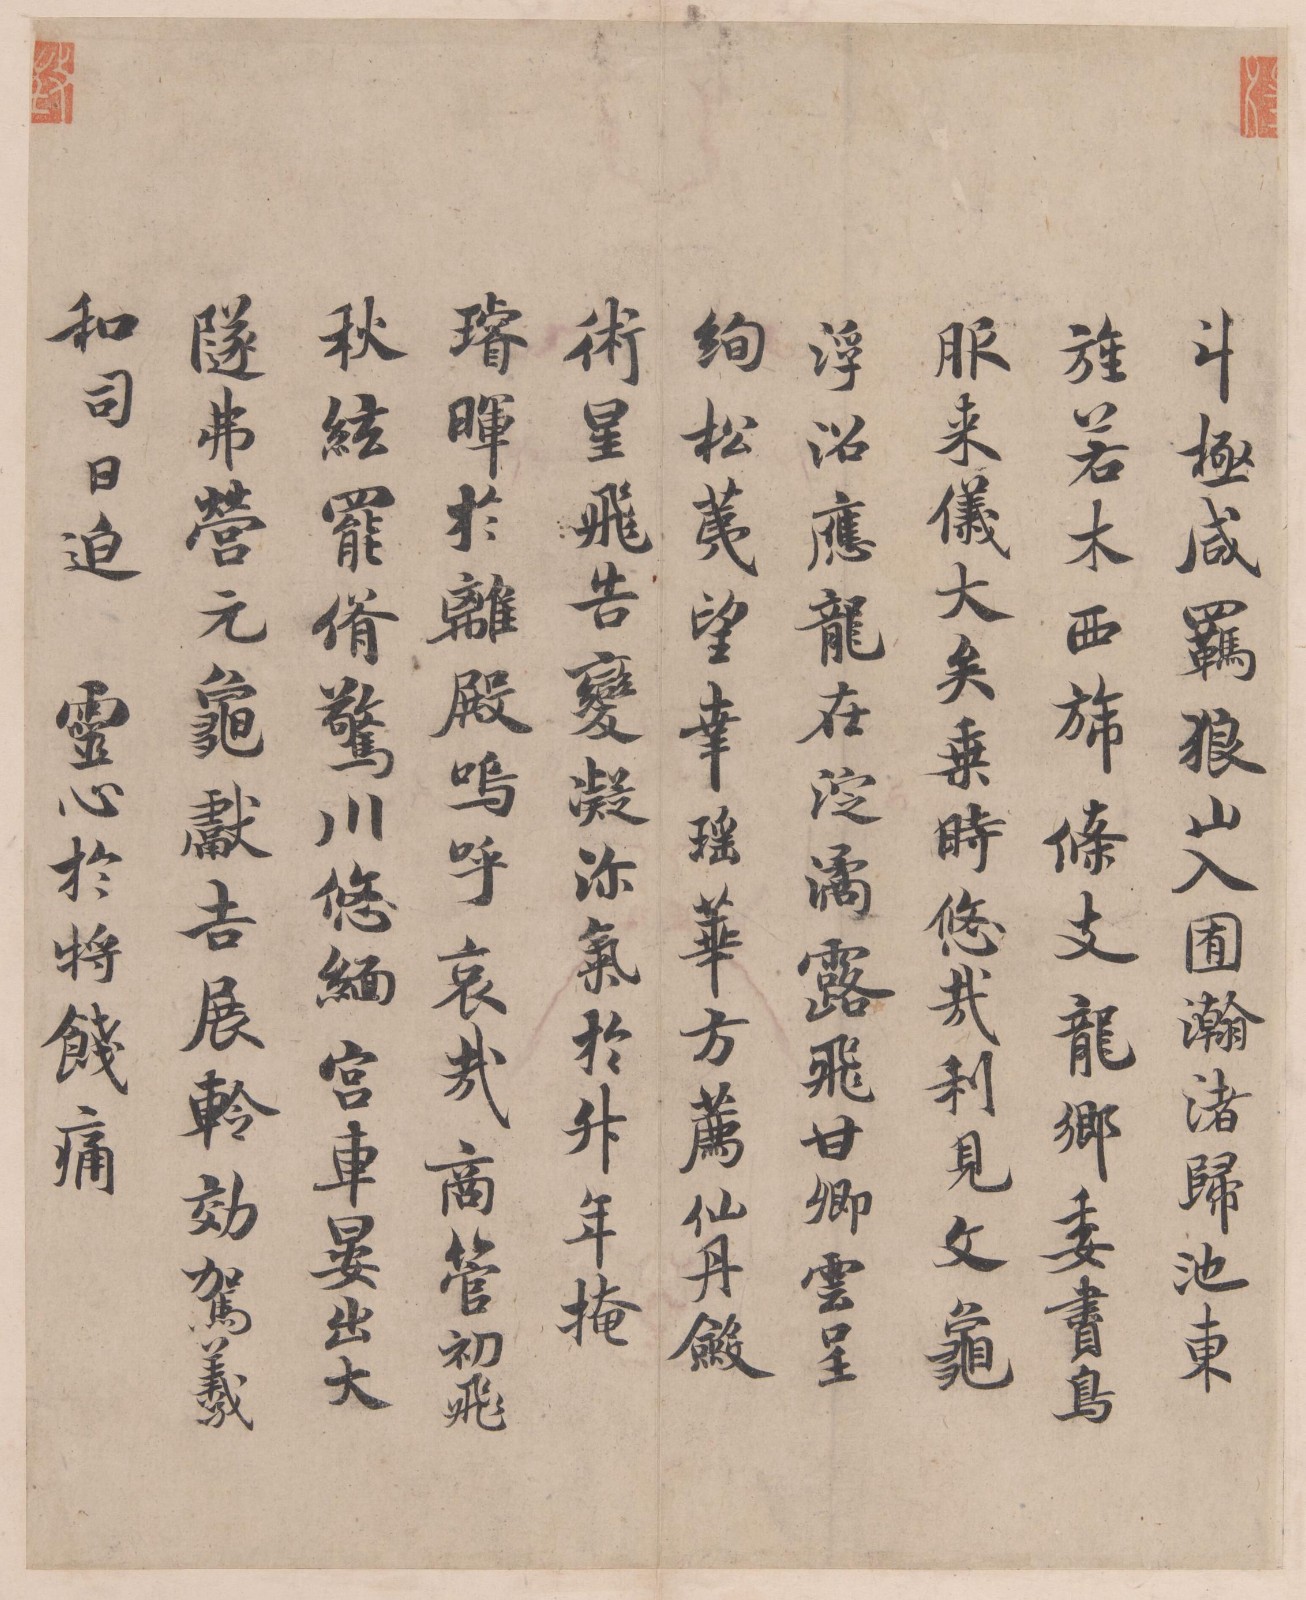 斗極咸羈狼山入囿瀚渚歸池東
旌若木西旆條支龍鄉委賮鳥
服来儀大矣乗時悠哉利見文龜
浮沼應龍在淀潏露飛甘卿雲呈
絢松荑望幸瑶華方薦仙丹斂
術星飛告變凝沴氣於升年掩
璿暉於離殿嗚呼哀哉商管初飛
秋絃罷偦驚川悠緬宮車晏出大
隧弗營元龜獻吉展軨効駕羲
和司日迫 靈心於將餞痛